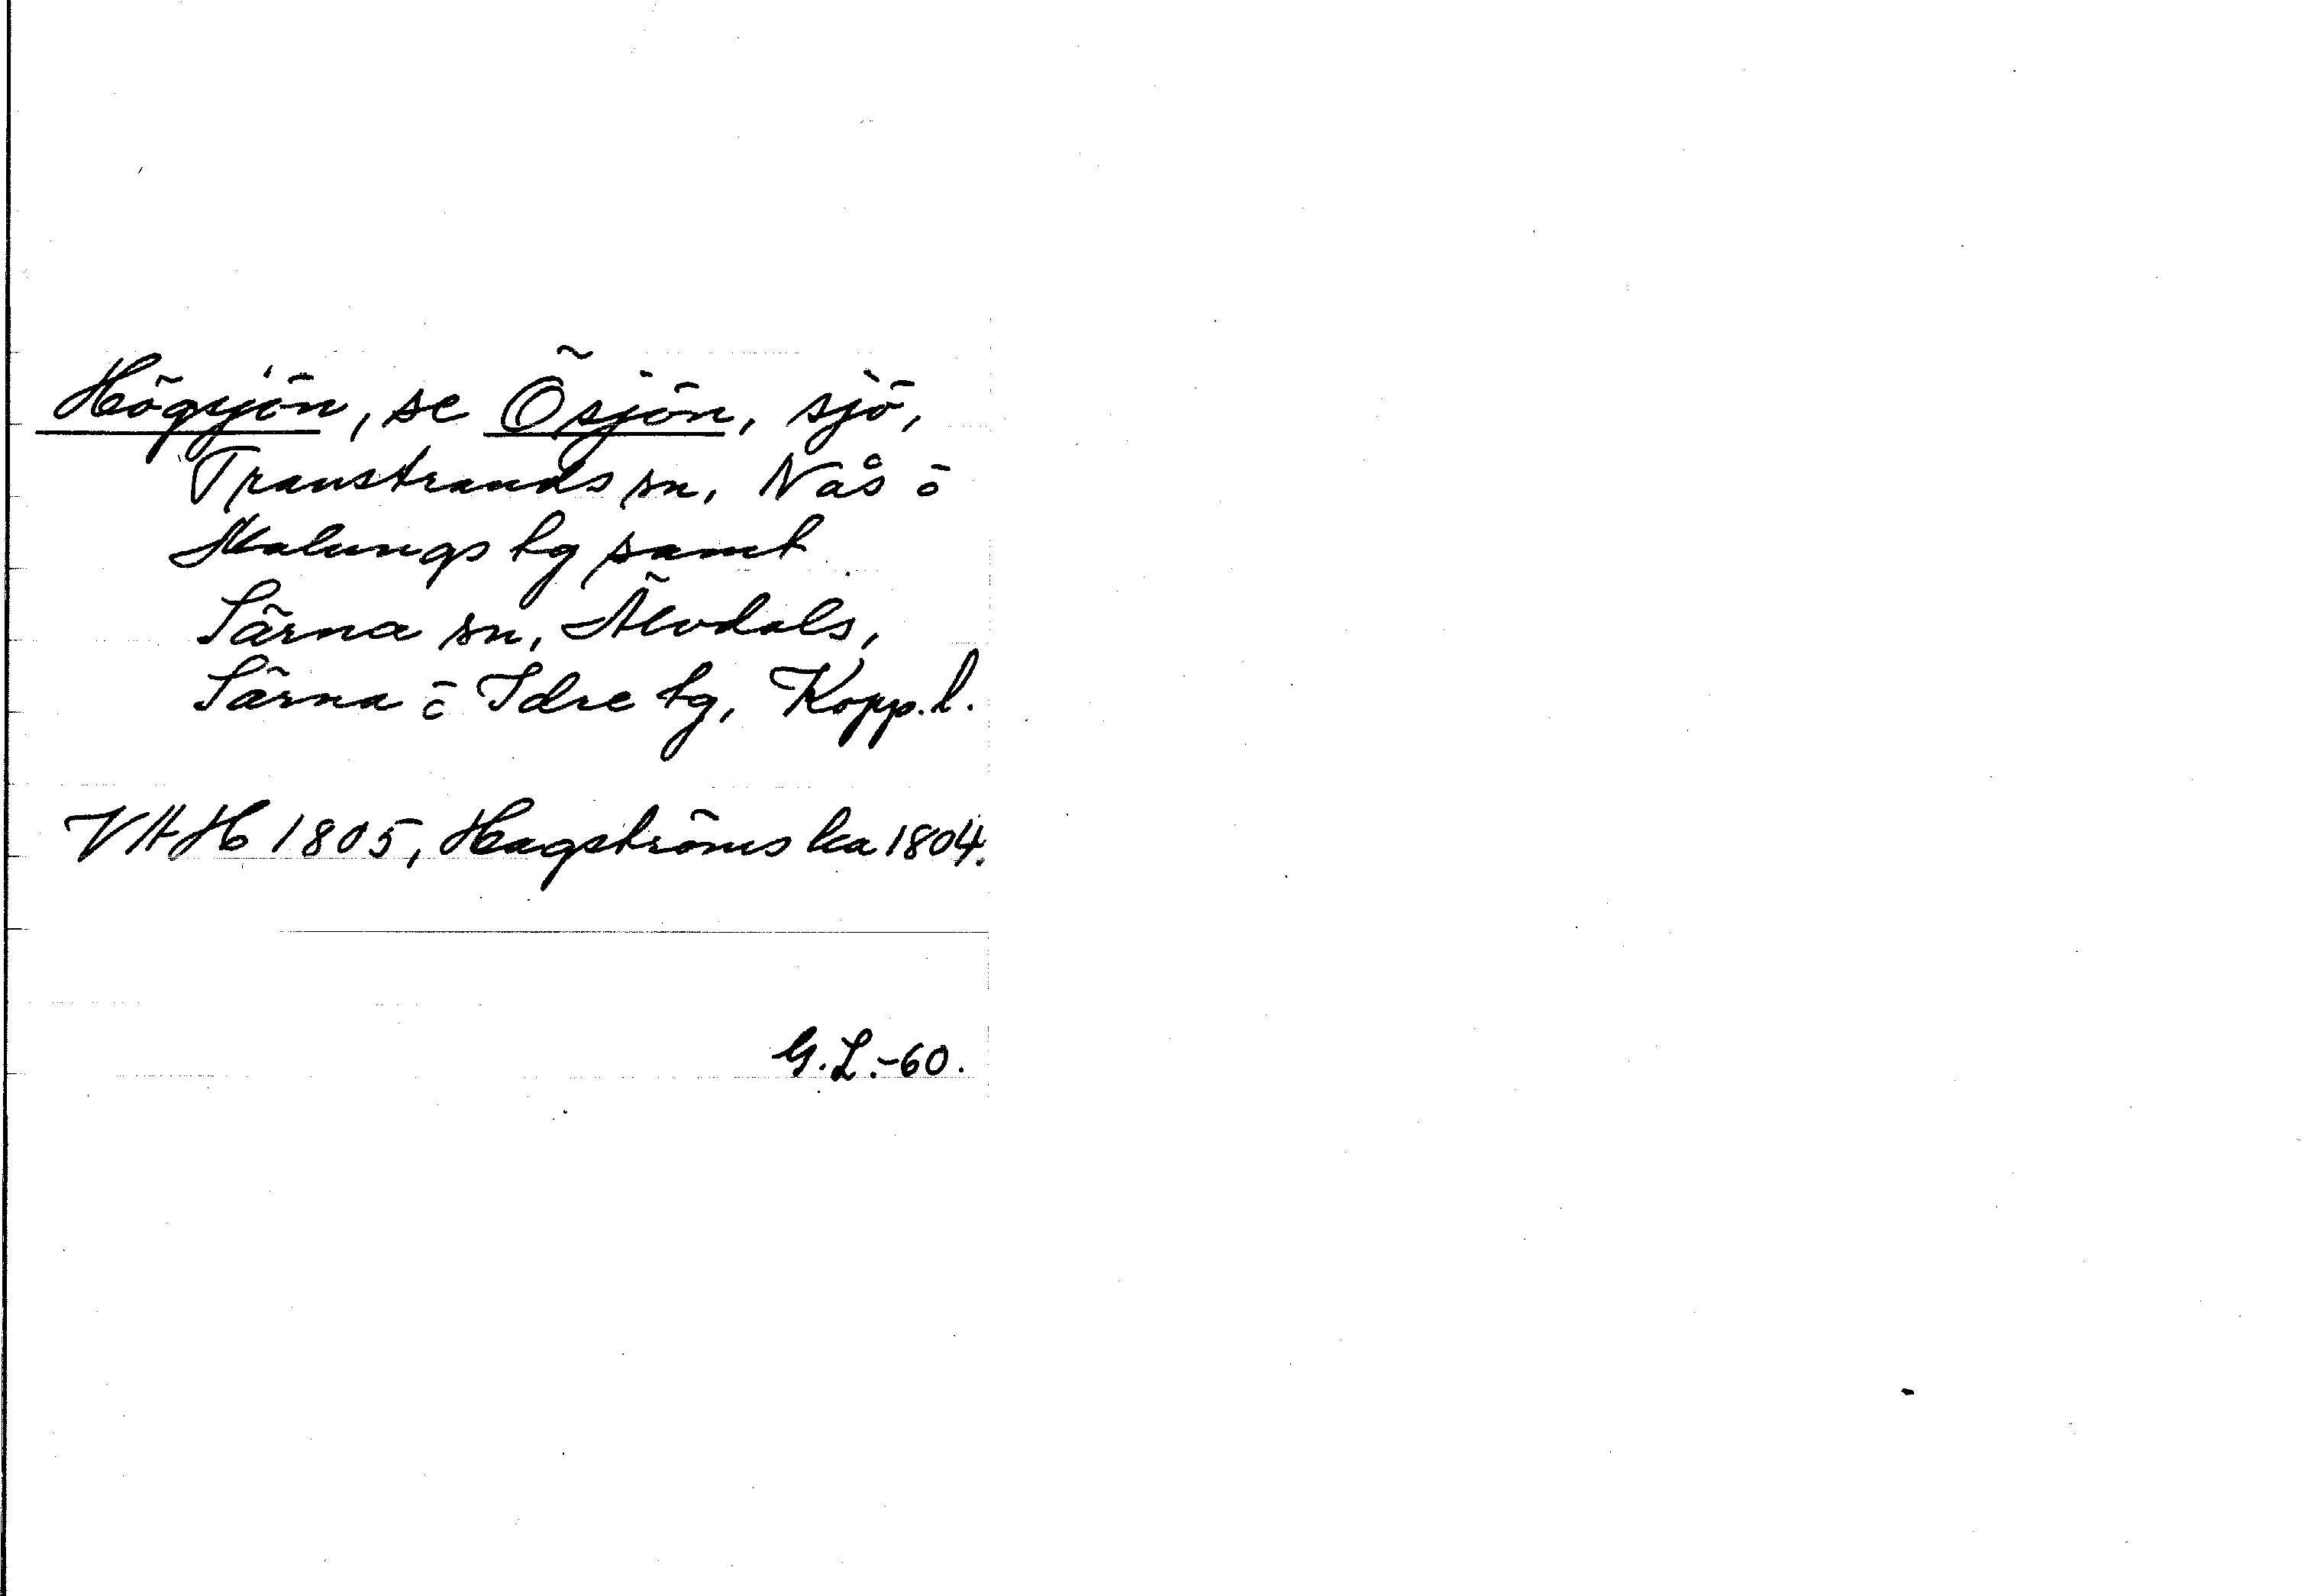 Högsjön, se Ösjön, sjö,
Transtrands sn, Nås o
Malungs tg samt
Särna sn, Älvdals,
Särna o Idre tg, Kopp. l.
VAH 1805, Hagströms ka 1804.
G.L.-60.